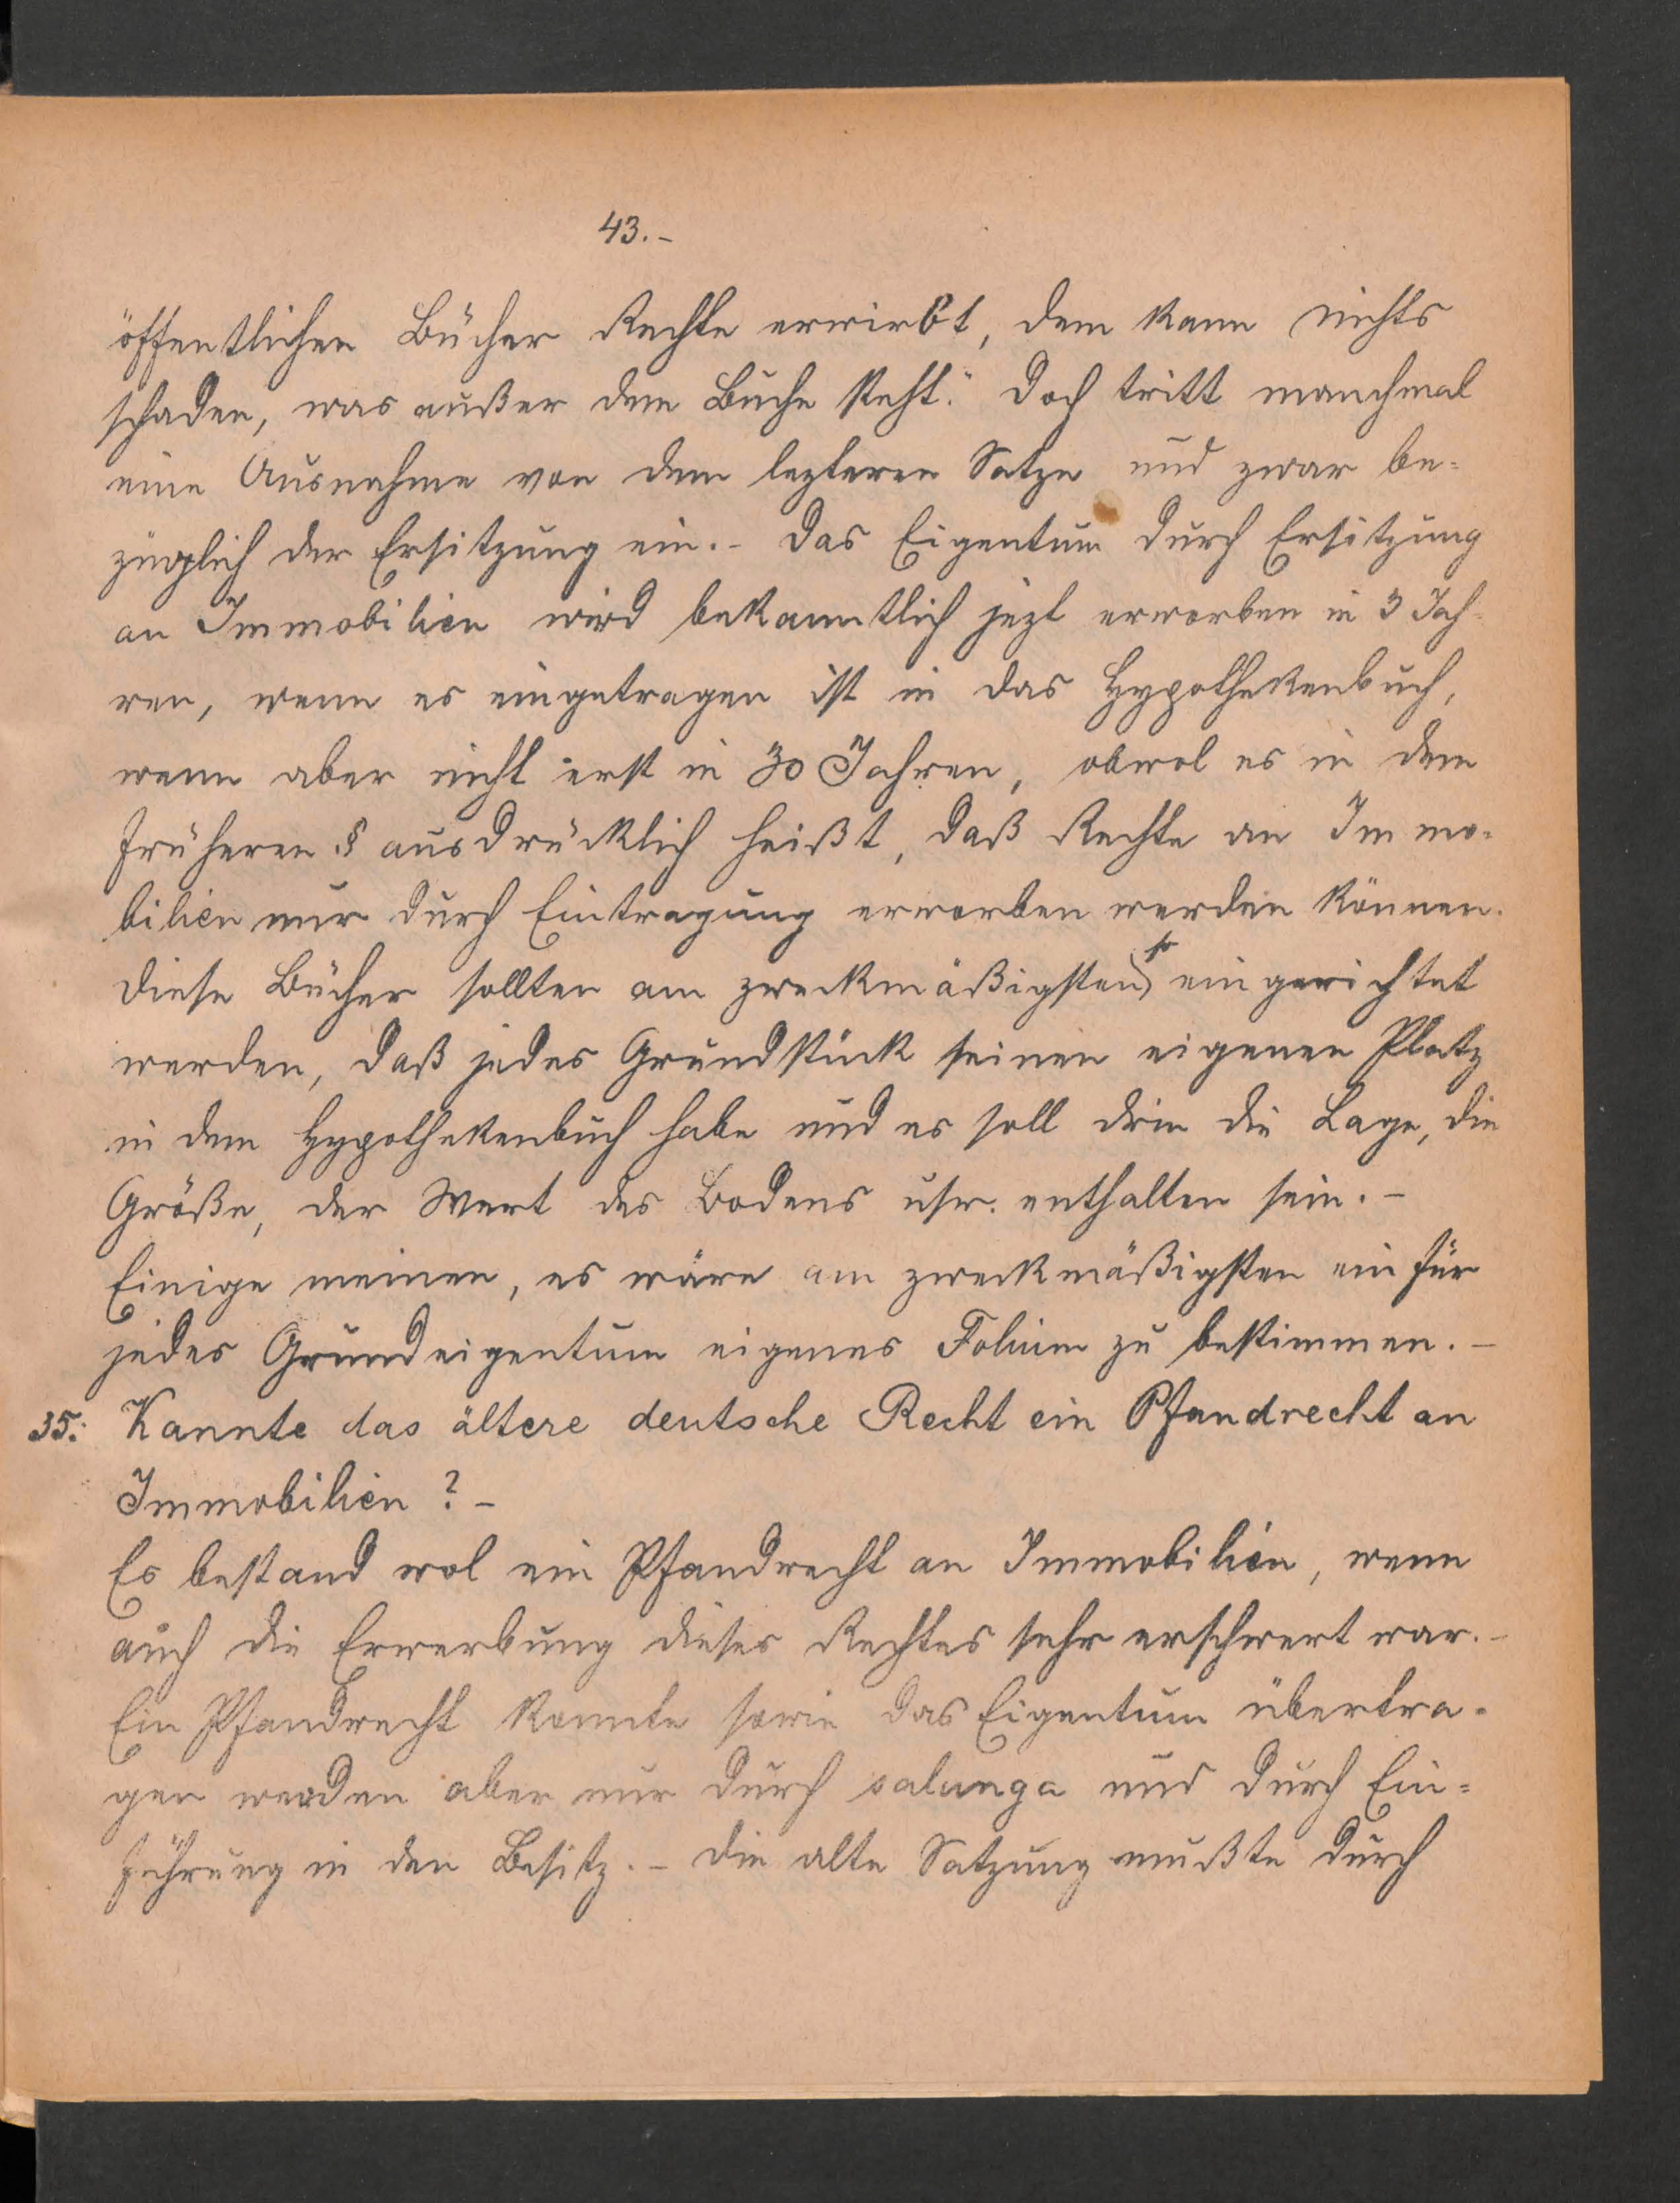 43.-
öffentlichen Bücher Rechte erwirbt, dem kann nichts
schaden, was außer dem Buche steht." Doch tritt manchmal
eine Ausnahme von dem lezteren Satze und zwar be=
züglich der Ersitzung ein.- Das Eigentum durch Ersitzung
an Immobilien wird bekanntlich jezt erworben in 3 Jah-
ren, wenn es eingetragen ist in das Hypothekenbuch,
wenn aber nicht erst in 30 Jahren, obwol es in dem
früheren § ausdrücklich heißt, daß Rechte an Immo-
bilien nur durch Eintragung erworben werden können.
Diese Bücher sollten am zweckmäßigsten so eingerichtet
werden, daß jedes Grundstück seinen eigenen Platz
in dem Hypothekenbuch habe und es soll drin die Lage, die
Größe, der Wert des Bodens usw. enthalten sein.-
Einige meinen, es wäre am zweckmäßigsten ein für
jedes Grundeigentum eigenes Folium zu bestimmen.-
35. Kannte das ältere deutsche Recht ein Pfandrecht an
Immobilien?-
Es bestand wol ein Pfandrecht an Immobilien, wenn
auch die Erwerbung dieses Rechtes sehr erschwert war.-
Ein Pfandrecht konnte sowie das Eigentum übertra-
gen werden aber nur durch salunga und durch Ein=
führung in den Besitz.- Die alte Satzung mußte durch